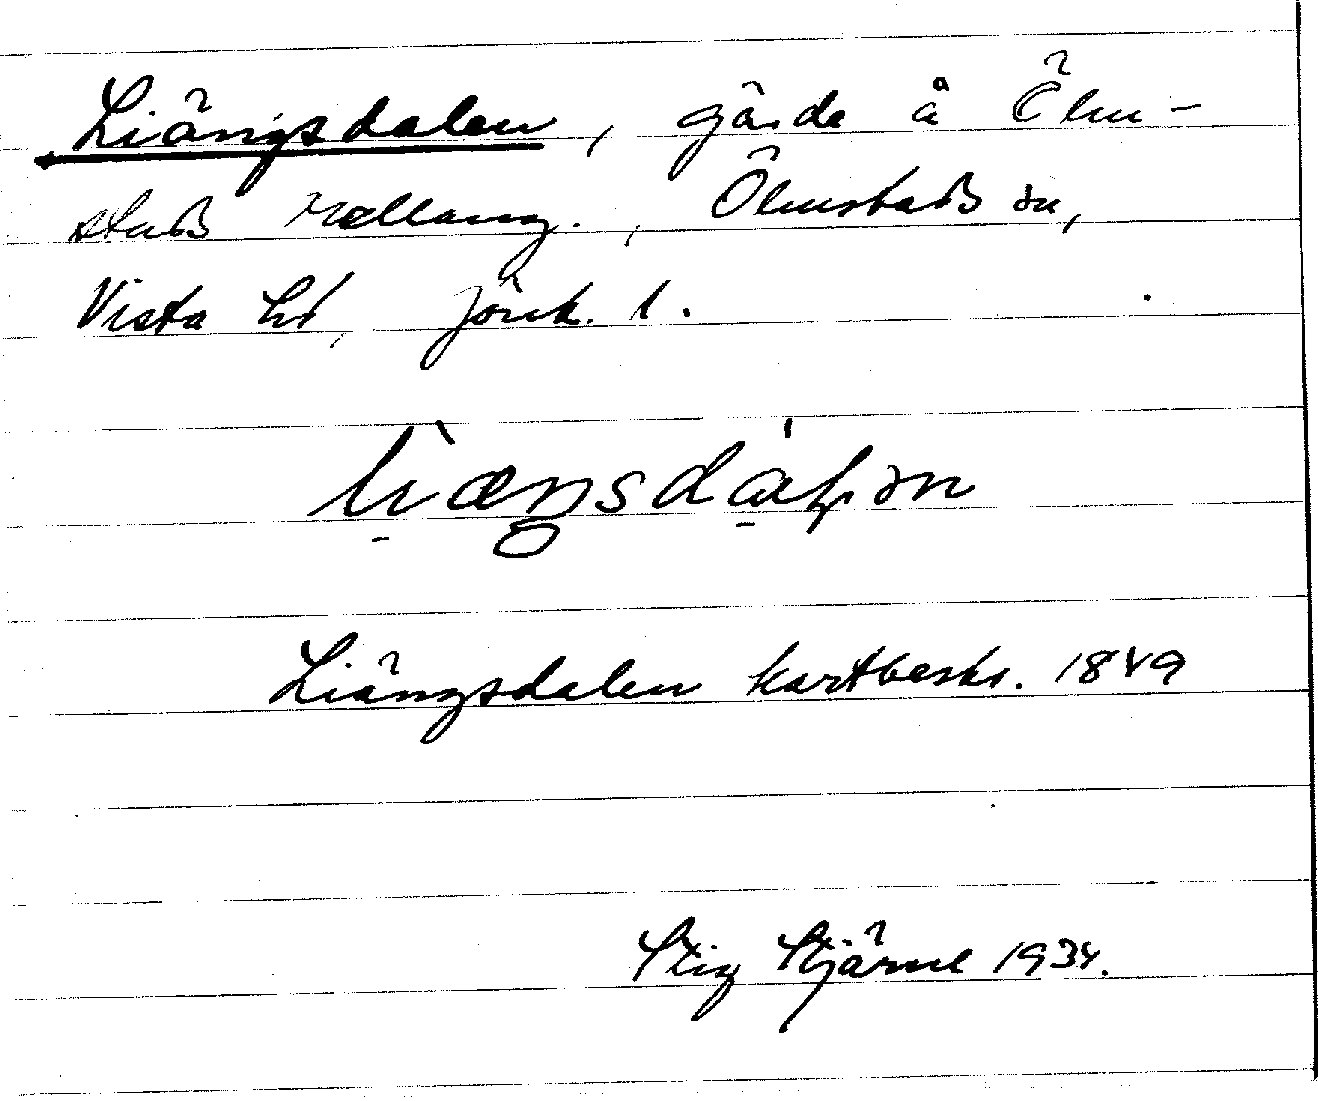 Liängsdalen, gärde å Ölm-
stads Mellang., Ölmstads sn,
Vista hd, Jönk. l.
Liängsdalen kartbeskr. 1849
Stig Stjärne 1934.